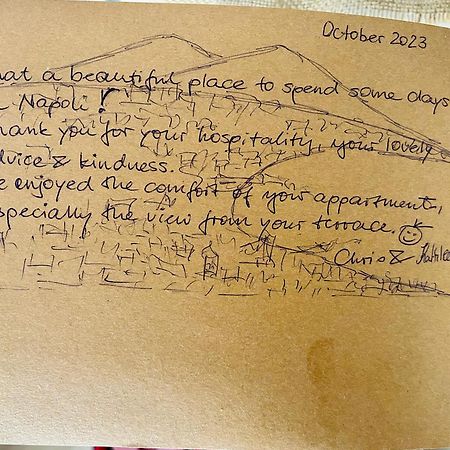 October 2023
hat a beautiful place to spend some days
Napoli!
hank you for your hospitality, your lovely
dvice & kindness.
e enjoyed the comfort of your appartment,
specially the view from your terrace.
Chris &